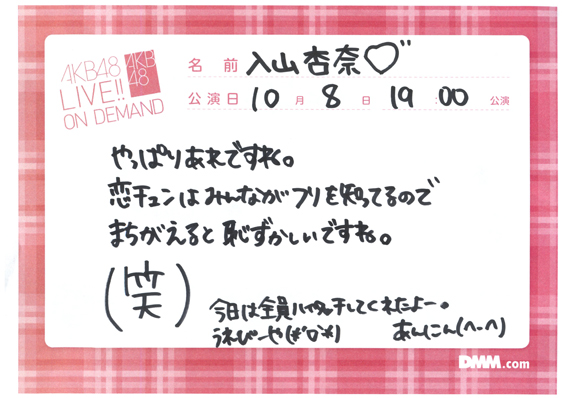 AKB48
LIVE!!
ON DEMAND
AKB
48
名前 入山杏奈♡"
公演日 10月 8日 19:00 公演
やっぱりあれですね。
恋チュンはみんながフリを知ってるので
まちがえると恥ずかしいですね。
(笑)
今日は全員ハイタッチしてくれたよー。
うれぴーや(*'□'*)
あんにん(^-^)
DMM.com